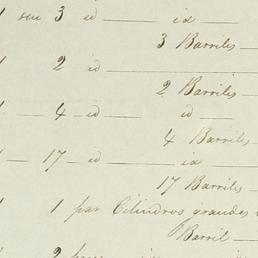 1 seu 3 id ____ id ____
3 Barriles __
1 ____ 2 id ____
2 Barriles __
1 __ 4 id ____ id ____
4 Barriles __
1 __ 17 id ____ id ____
17 Barriles __
1 1 par Cilindros grandes
Barril __
2